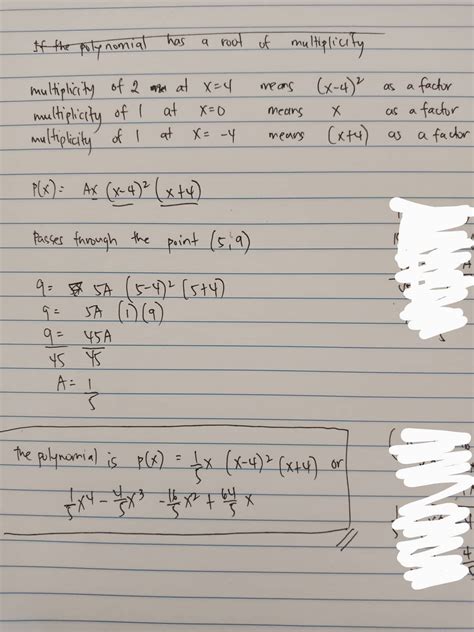 If the polynomial has a root of multiplicity
multiplicity of 2 at x=4 means (x-4)² as a factor
multiplicity of 1 at x=0 means x as a factor
multiplicity of 1 at x= -4 means (x+4) as a factor
P(x)= Ax (x-4)² (x+4)
Passes through the point (5,9)
9= 5A (5-4)² (5+4)
9= 5A (1)(9)
9/45 = 45A/45
A= 1/5
the polynomial is p(x) = 1/5 x (x-4)² (x+4) or
1/5 x⁴ - 4/5 x³ - 16/5 x² + 64/5 x